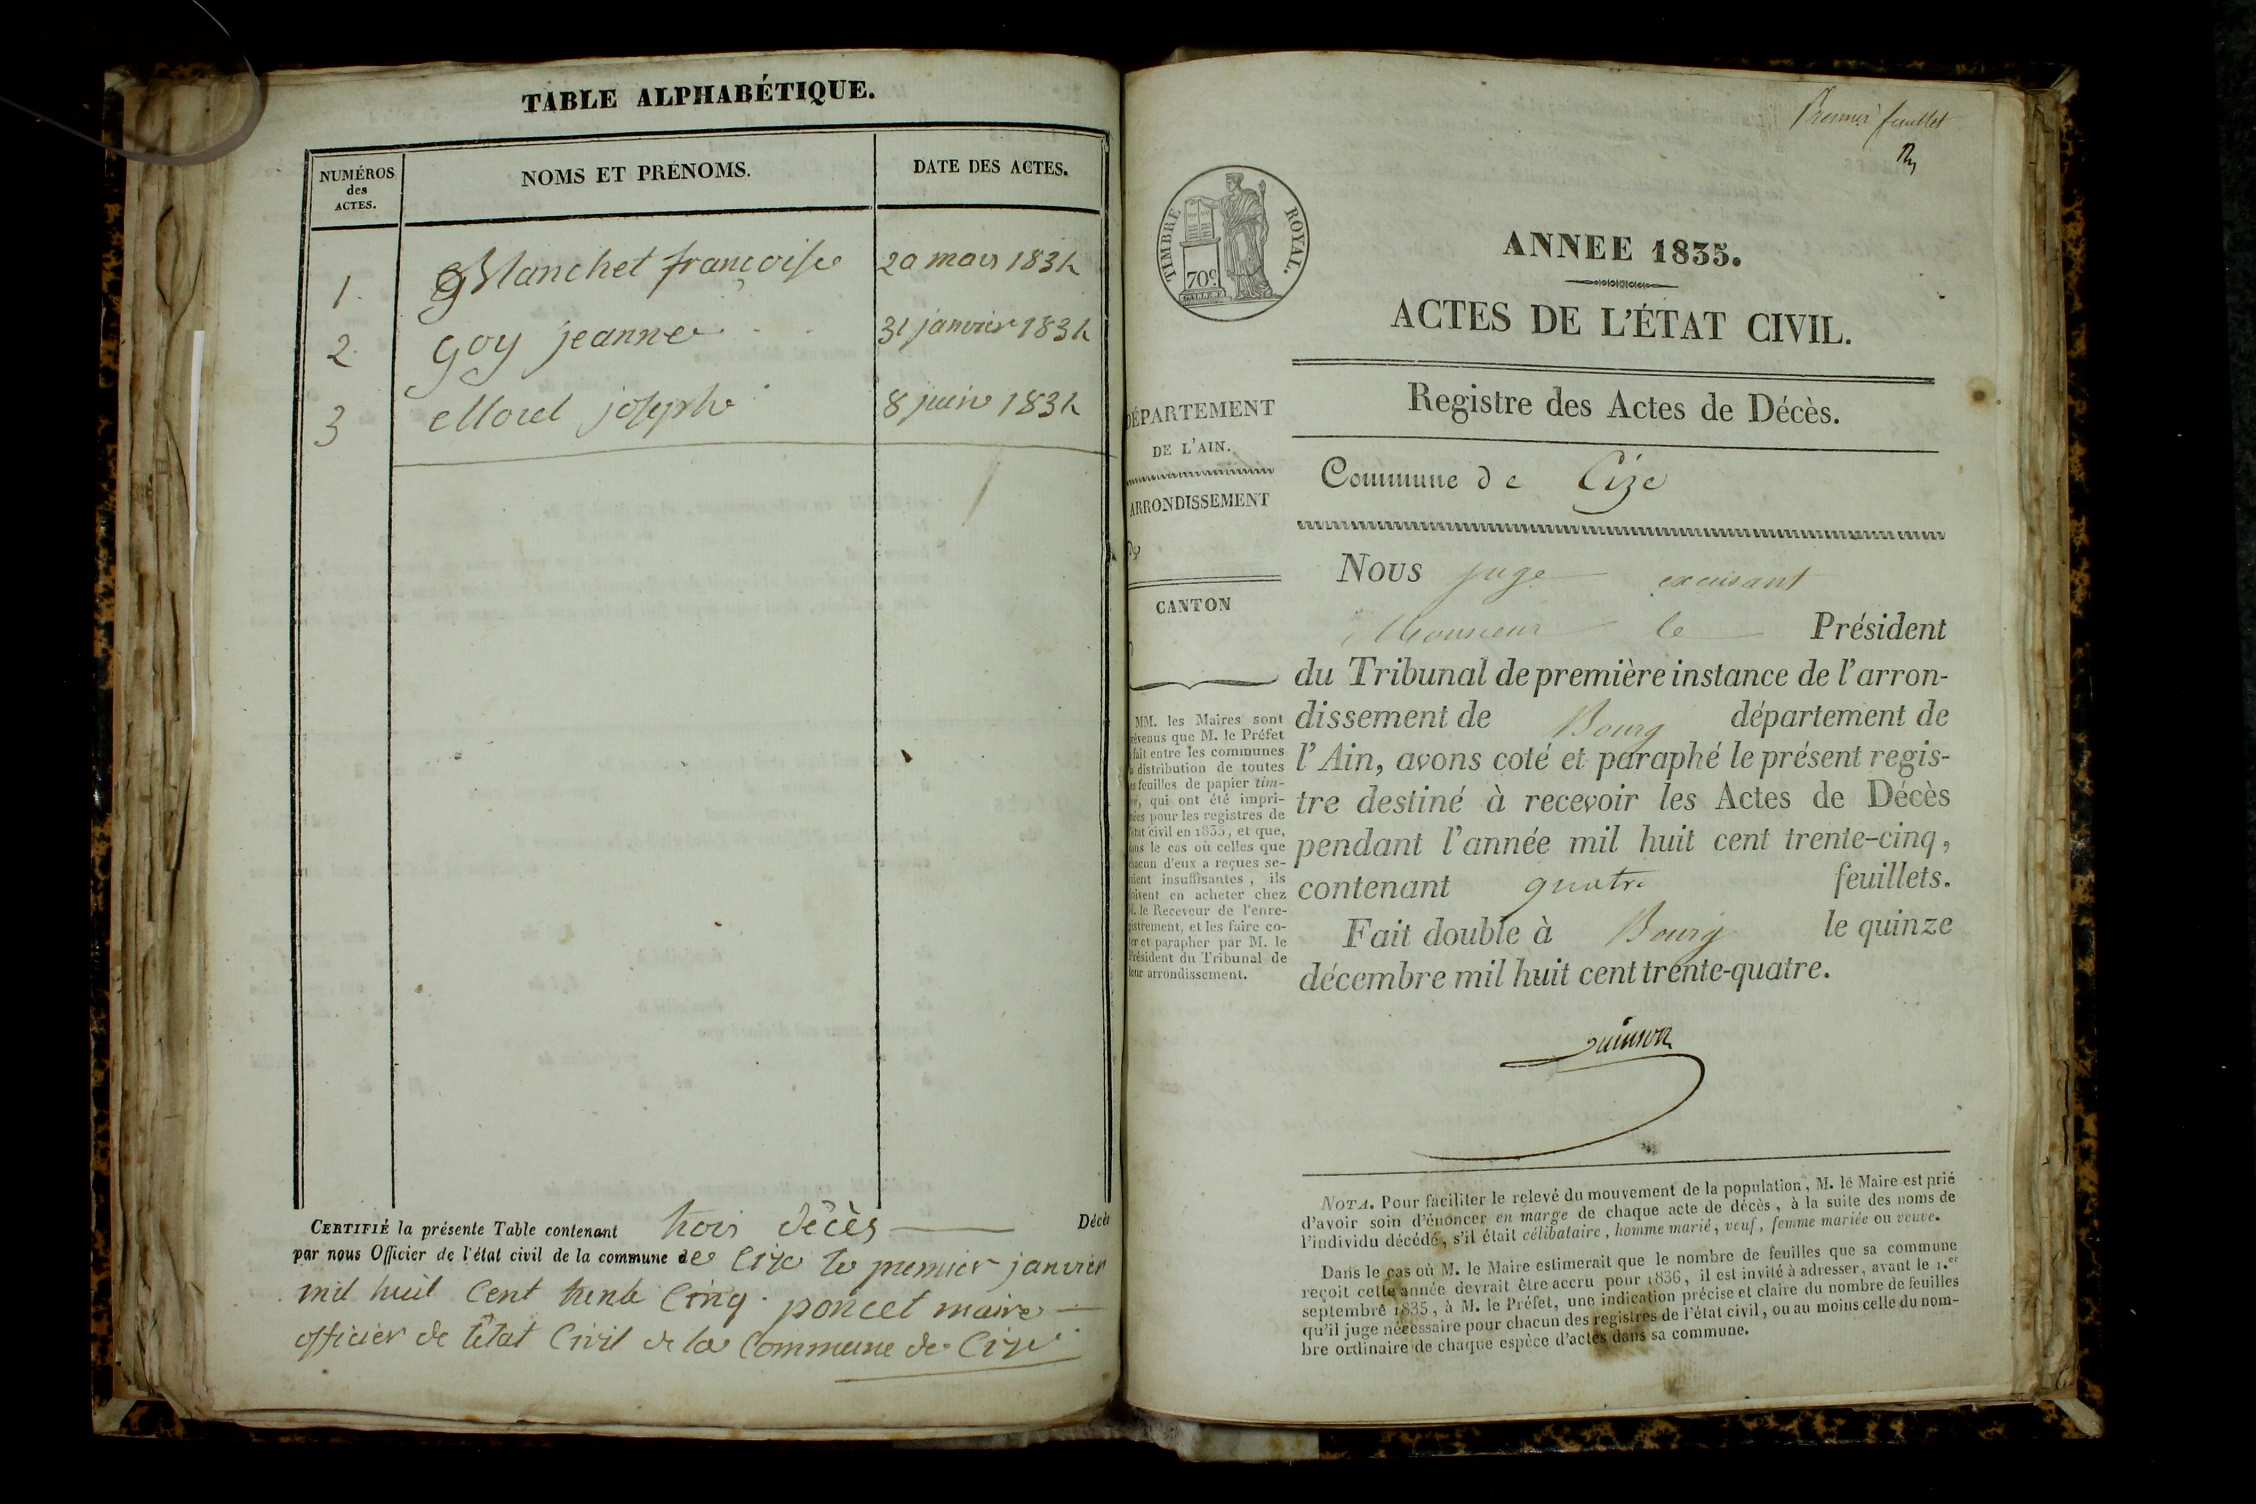 TABLE ALPHABÉTIQUE.
NUMÉROS
des
ACTES.
NOMS ET PRÉNOMS.
DATE DES ACTES.
1. Blanchet françoise 20 mars 1834
2. goy jeanne 31 janvier 1834
3 Morel joseph 8 juin 1834
CERTIFIÉ la présente Table contenant trois décès Décès
par nous Officier de l'état civil de la commune de Cize le premier janvier
mil huit cent trente cinq. poncet maire
officier de l'état Civil de la Commune de Cize
Premier feuillet
TIMBRE ROYAL.
70c
ANNEE 1835.
ACTES DE L'ÉTAT CIVIL.
Registre des Actes de Décès.
Commune de Cize
DÉPARTEMENT
DE L'AIN.
ARRONDISSEMENT
CANTON
MM. les Maires sont
prévenus que M. le Préfet
fait entre les communes
la distribution de toutes
les feuilles de papier tim-
bré, qui ont été impri-
mées pour les registres de
l'état civil en 1835, et que,
dans le cas où celles que
chacun d'eux a reçues se-
raient insuffisantes, ils
doivent en acheter chez
M. le Receveur de l'enre-
gistrement, et les faire co-
ter et parapher par M. le
Président du Tribunal de
leur arrondissement.
Nous juge excusant
Monsieur le Président
du Tribunal de première instance de l'arron-
dissement de Bourg département de
l'Ain, avons coté et paraphé le présent regis-
tre destiné à recevoir les Actes de Décès
pendant l'année mil huit cent trente-cinq,
contenant quatre feuillets.
Fait double à Bourg le quinze
décembre mil huit cent trente-quatre.
NOTA. Pour faciliter le relevé du mouvement de la population, M. le Maire est prié
d'avoir soin d'énoncer en marge de chaque acte de décès, à la suite des noms de
l'individu décédé, s'il était célibataire, homme marié, veuf, femme mariée ou veuve.
Dans le cas où M. le Maire estimerait que le nombre de feuilles que sa commune
reçoit cette année devrait être accru pour 1836, il est invité à adresser, avant le 1.er
septembre 1835, à M. le Préfet, une indication précise et claire du nombre de feuilles
qu'il juge nécessaire pour chacun des registres de l'état civil, ou au moins celle du nom-
bre ordinaire de chaque espèce d'actes dans sa commune.